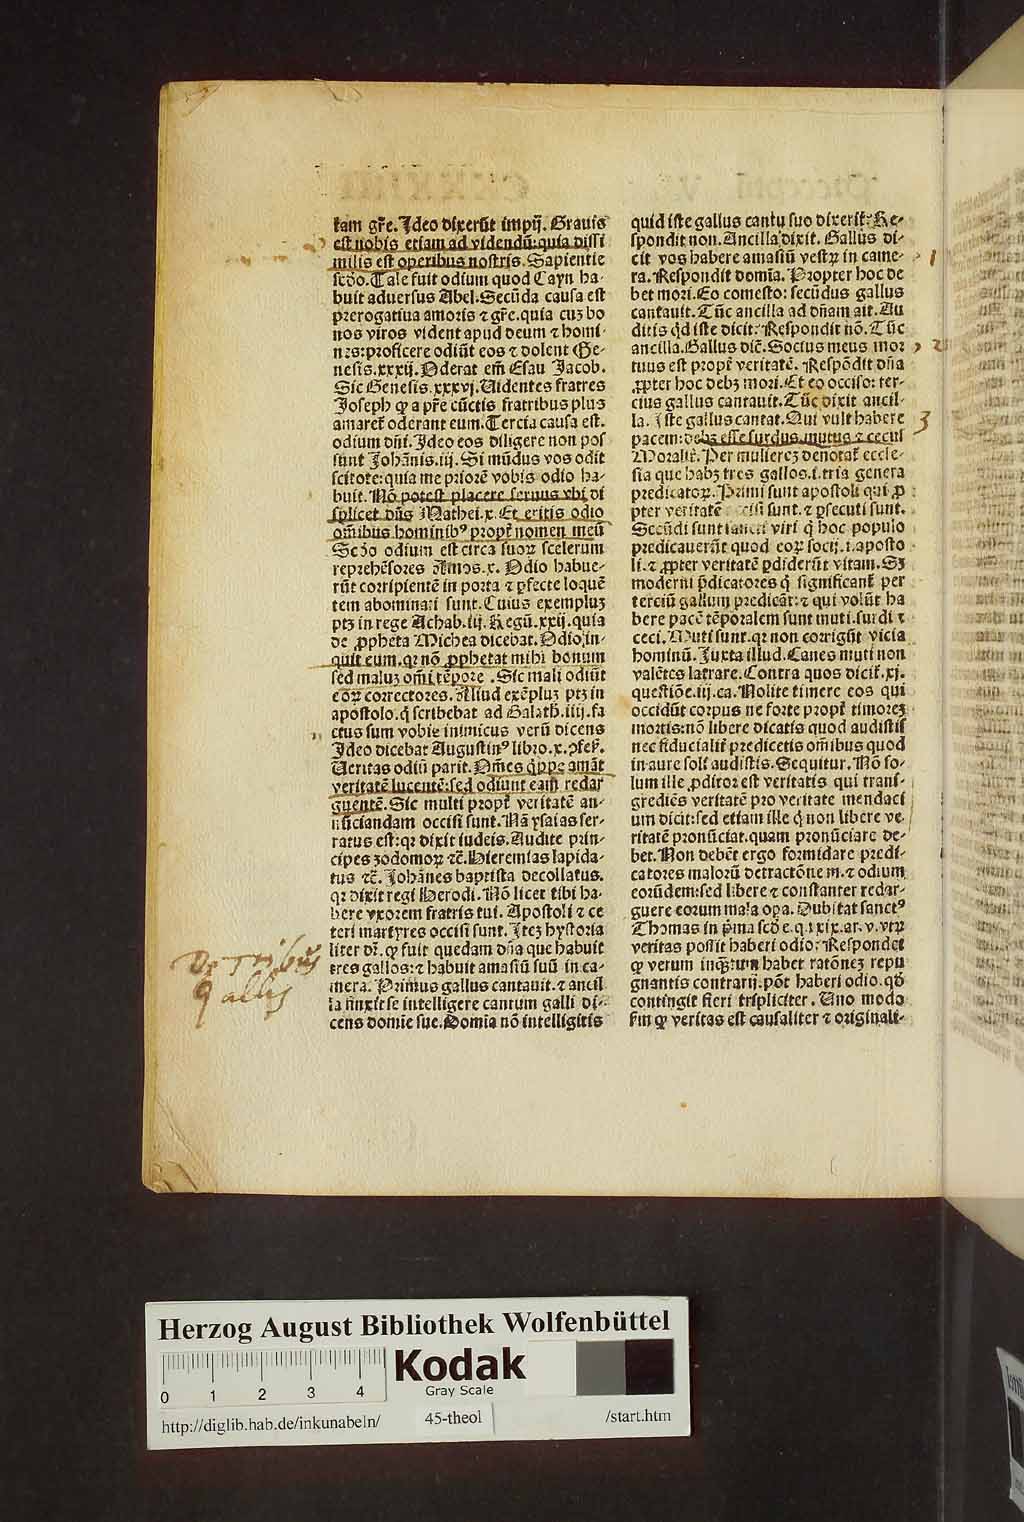 tam gr̄e. Ideo dixerūt impij. Grauis
est nobis etiam ad videndū: quia dissi
milis est operibus nostris. Sapientie
scd̄o. Tale fuit odium quod Cayn ha-
buit aduersus Abel. Secūda causa est
prerogatiua amoris ⁊ gr̄e. quia cuȝ bo
nos viros vident apud deum ⁊ homi-
nes: proficere odiūt eos ⁊ dolent Ge-
nesis. xxxij. Oderat em̄ Esau Jacob.
Sic Genesis. xxxvj. Uidentes fratres
Joseph ꝙ a pr̄e cūctis fratribus plus
amaret᷑ oderant eum. Tercia causa est.
odium dn̄i. Ideo eos diligere non pos
sunt Johānis. iij. Si mūdus vos odit
scitote: quia me priorē vobis odio ha-
buit. Nō potest placere seruus vbi di
splicet dn̄s Mathei. x. Et eritis odio
om̄ibus hominibꝰ propt̄ nomen meū
Scd̄o odium est circa suoꝝ scelerum
reprehēsores Amos. x. Odio habue-
rūt corripientē in porta ⁊ ꝑfecte loquē
tem abominati sunt. Cuius exempluȝ
ptȝ in rege Achab. iij. Regū. xxij. quia
de ꝓpheta Michea dicebat. Odio in-
quit eum. qꝛ nō ꝓphetat mihi bonum
sed maluȝ om̄i tēpore. Sic mali odiūt
eoꝝ correctores. Aliud exēpluȝ ptȝ in
apostolo. q̄ scribebat ad Galath. iiij. fa
ctus sum vobis inimicus verū dicens
Ideo dicebat Augustinꝰ libro. x. ꝯfes̄.
Ueritas odiū parit. Om̄es q̄ppe amāt
veritatē lucentē: sed odiunt eam redar
guentē. Sic multi propt̄ veritatē an-
nūciandam occisi sunt. Nā ysaias ser-
ratus est: qꝛ dixit iudeis. Audite prin-
cipes zodomoꝝ ⁊c̄. Hieremias lapida-
tus ⁊c̄. Johānes baptista decollatus.
qꝛ dixit regi Herodi. Nō licet tibi ha-
bere vxorem fratris tui. Apostoli ⁊ ce
teri martyres occisi sunt. Iteȝ hystoria
liter dr̄. ꝙ fuit quedam dn̄a que habuit
tres gallos: ⁊ habuit amasiū suū in ca-
mera. Primus gallus cantauit. ⁊ ancil
la finxit se intelligere cantum galli di-
cens domie sue. Domīa nō intelligitis
De tribus
gallis
quid iste gallus cantu suo dixerit? Re-
spondit non. Ancilla dixit. Gallus di-
cit vos habere amasiū vestꝝ in came-
ra. Respondit domīa. Propter hoc de
bet mori. Eo comesto: secūdus gallus
cantauit. Tūc ancilla ad dn̄am ait. Au
ditis qd̄ iste dicit? Respondit nō. Tūc
ancilla. Gallus dic̄. Socius meus mor
tuus est propt̄ veritatē. Respōdit dn̄a
ꝓpter hoc debȝ mori. Et eo occiso: ter-
cius gallus cantauit. Tūc dixit ancil-
la. Iste gallus cantat. Qui vult habere
pacem: debȝ esse surdus. mutus ⁊ cecus
Moralit̄. Per mulierez denotat᷑ eccle-
sia que habȝ tres gallos. i. tria genera
predicatoꝝ. Primi sunt apostoli qui ꝓ
pter veritatē sunt. ⁊ ꝑsecuti sunt.
Secūdi sunt viri q̄ hoc populo
predicauerūt quod eoꝝ socij. i. aposto
li. ⁊ ꝓpter veritatē ꝑdiderūt vitam. Sȝ
moderni p̄dicatores q̄ significant᷑ per
terciū gallum predicāt: ⁊ qui volūt ha
bere pacē tēporalem sunt muti. surdi ⁊
ceci. Muti sunt. qꝛ non corrigūt vicia
hominū. Iuxta illud. Canes muti non
valētes latrare. Contra quos dicit᷑. xj.
questiōe. iij. ca. Nolite timere eos qui
occidūt corpus ne forte propt̄ timoreȝ
mortis: nō libere dicatis quod audistis
nec fiducialit̄ predicetis om̄ibus quod
in aure soli audistis. Sequitur. Nō so-
lum ille ꝓditor est veritatis qui trans-
grediēs veritatē pro veritate mendaci
um dicit: sed etiam ille q̄ non libere ve-
ritatē pronūciat. quam pronūciare de-
bet. Non debēt ergo formidare predi-
catores maloꝝ detractōne m. ⁊ odium
eorūdem: sed libere ⁊ constanter redar-
guere eorum mala opa. Dubitat sanctꝰ
Thomas in p̄ma scd̄e. q. xxix. ar. v. vtꝝ
veritas possit haberi odio? Respondet
ꝙ verum inq̄ȝtum habet ratōneȝ repu
gnantis contrarij. pōt haberi odio. qd̄
contingit fieri tripliciter. Uno modo
fm̄ ꝙ veritas est causaliter ⁊ originali-
1
2
3
Herzog August Bibliothek Wolfenbüttel
0 1 2 3 4
Kodak
Gray Scale
http://diglib.hab.de/inkunabeln/ 45-theol /start.htm